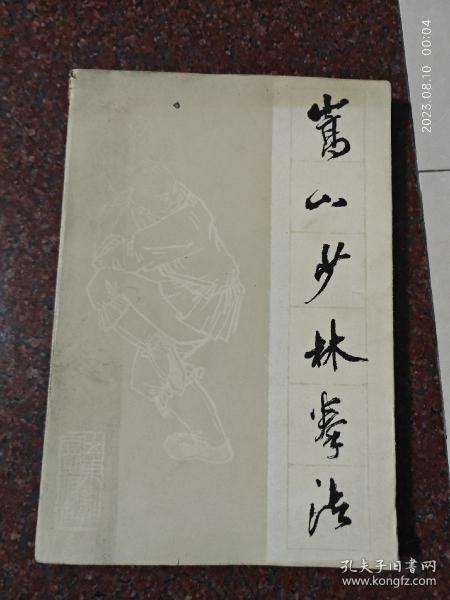 嵩山少林拳法
2023.08.10 00:04
孔夫子旧书网
www.kongfz.com